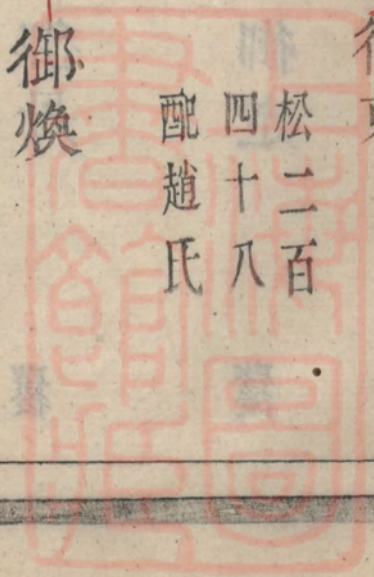 松二百
四十八
配趙氏
御煥